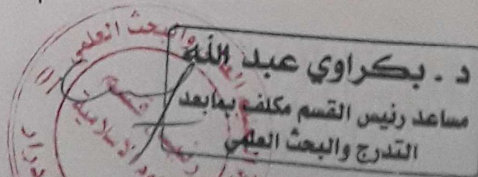 د. بكراوي عبد الله
مساعد رئيس القسم مكلف بمابعد
التدرج والبحث العلمي
والبحث العلمي